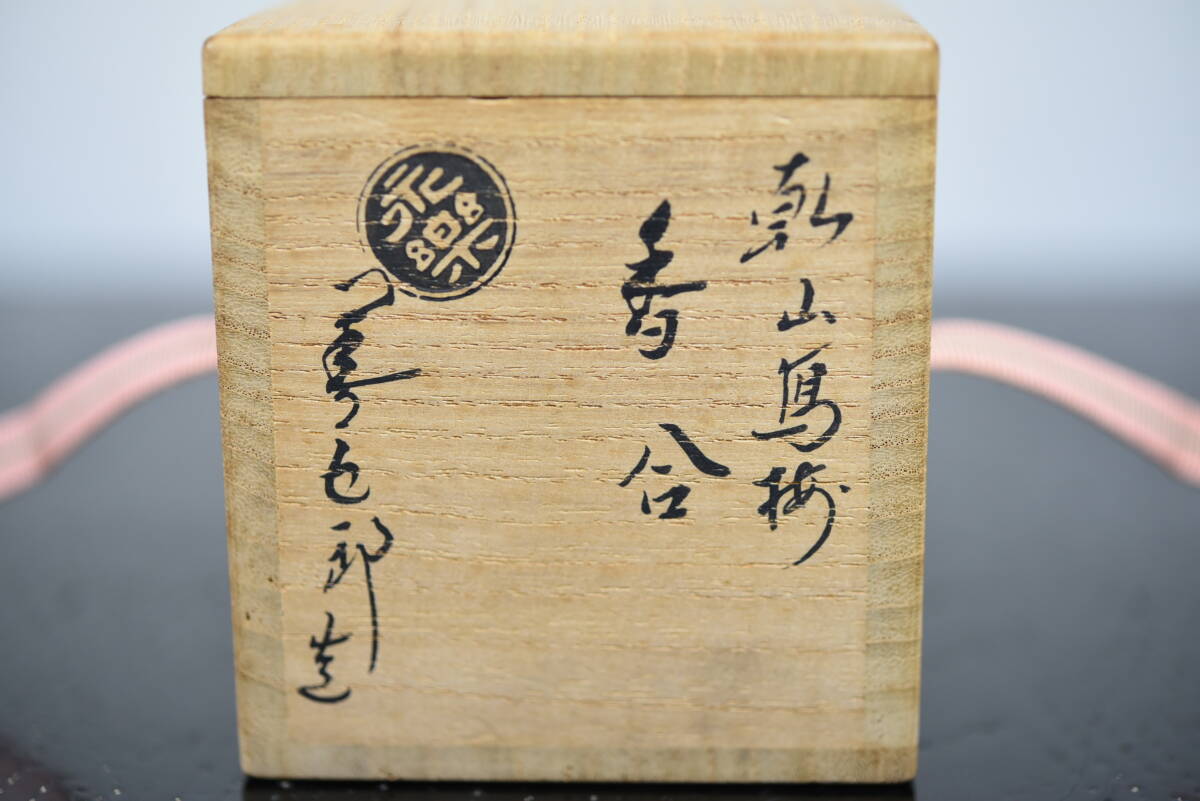 乾山写梅
香合
永樂
善五郎造